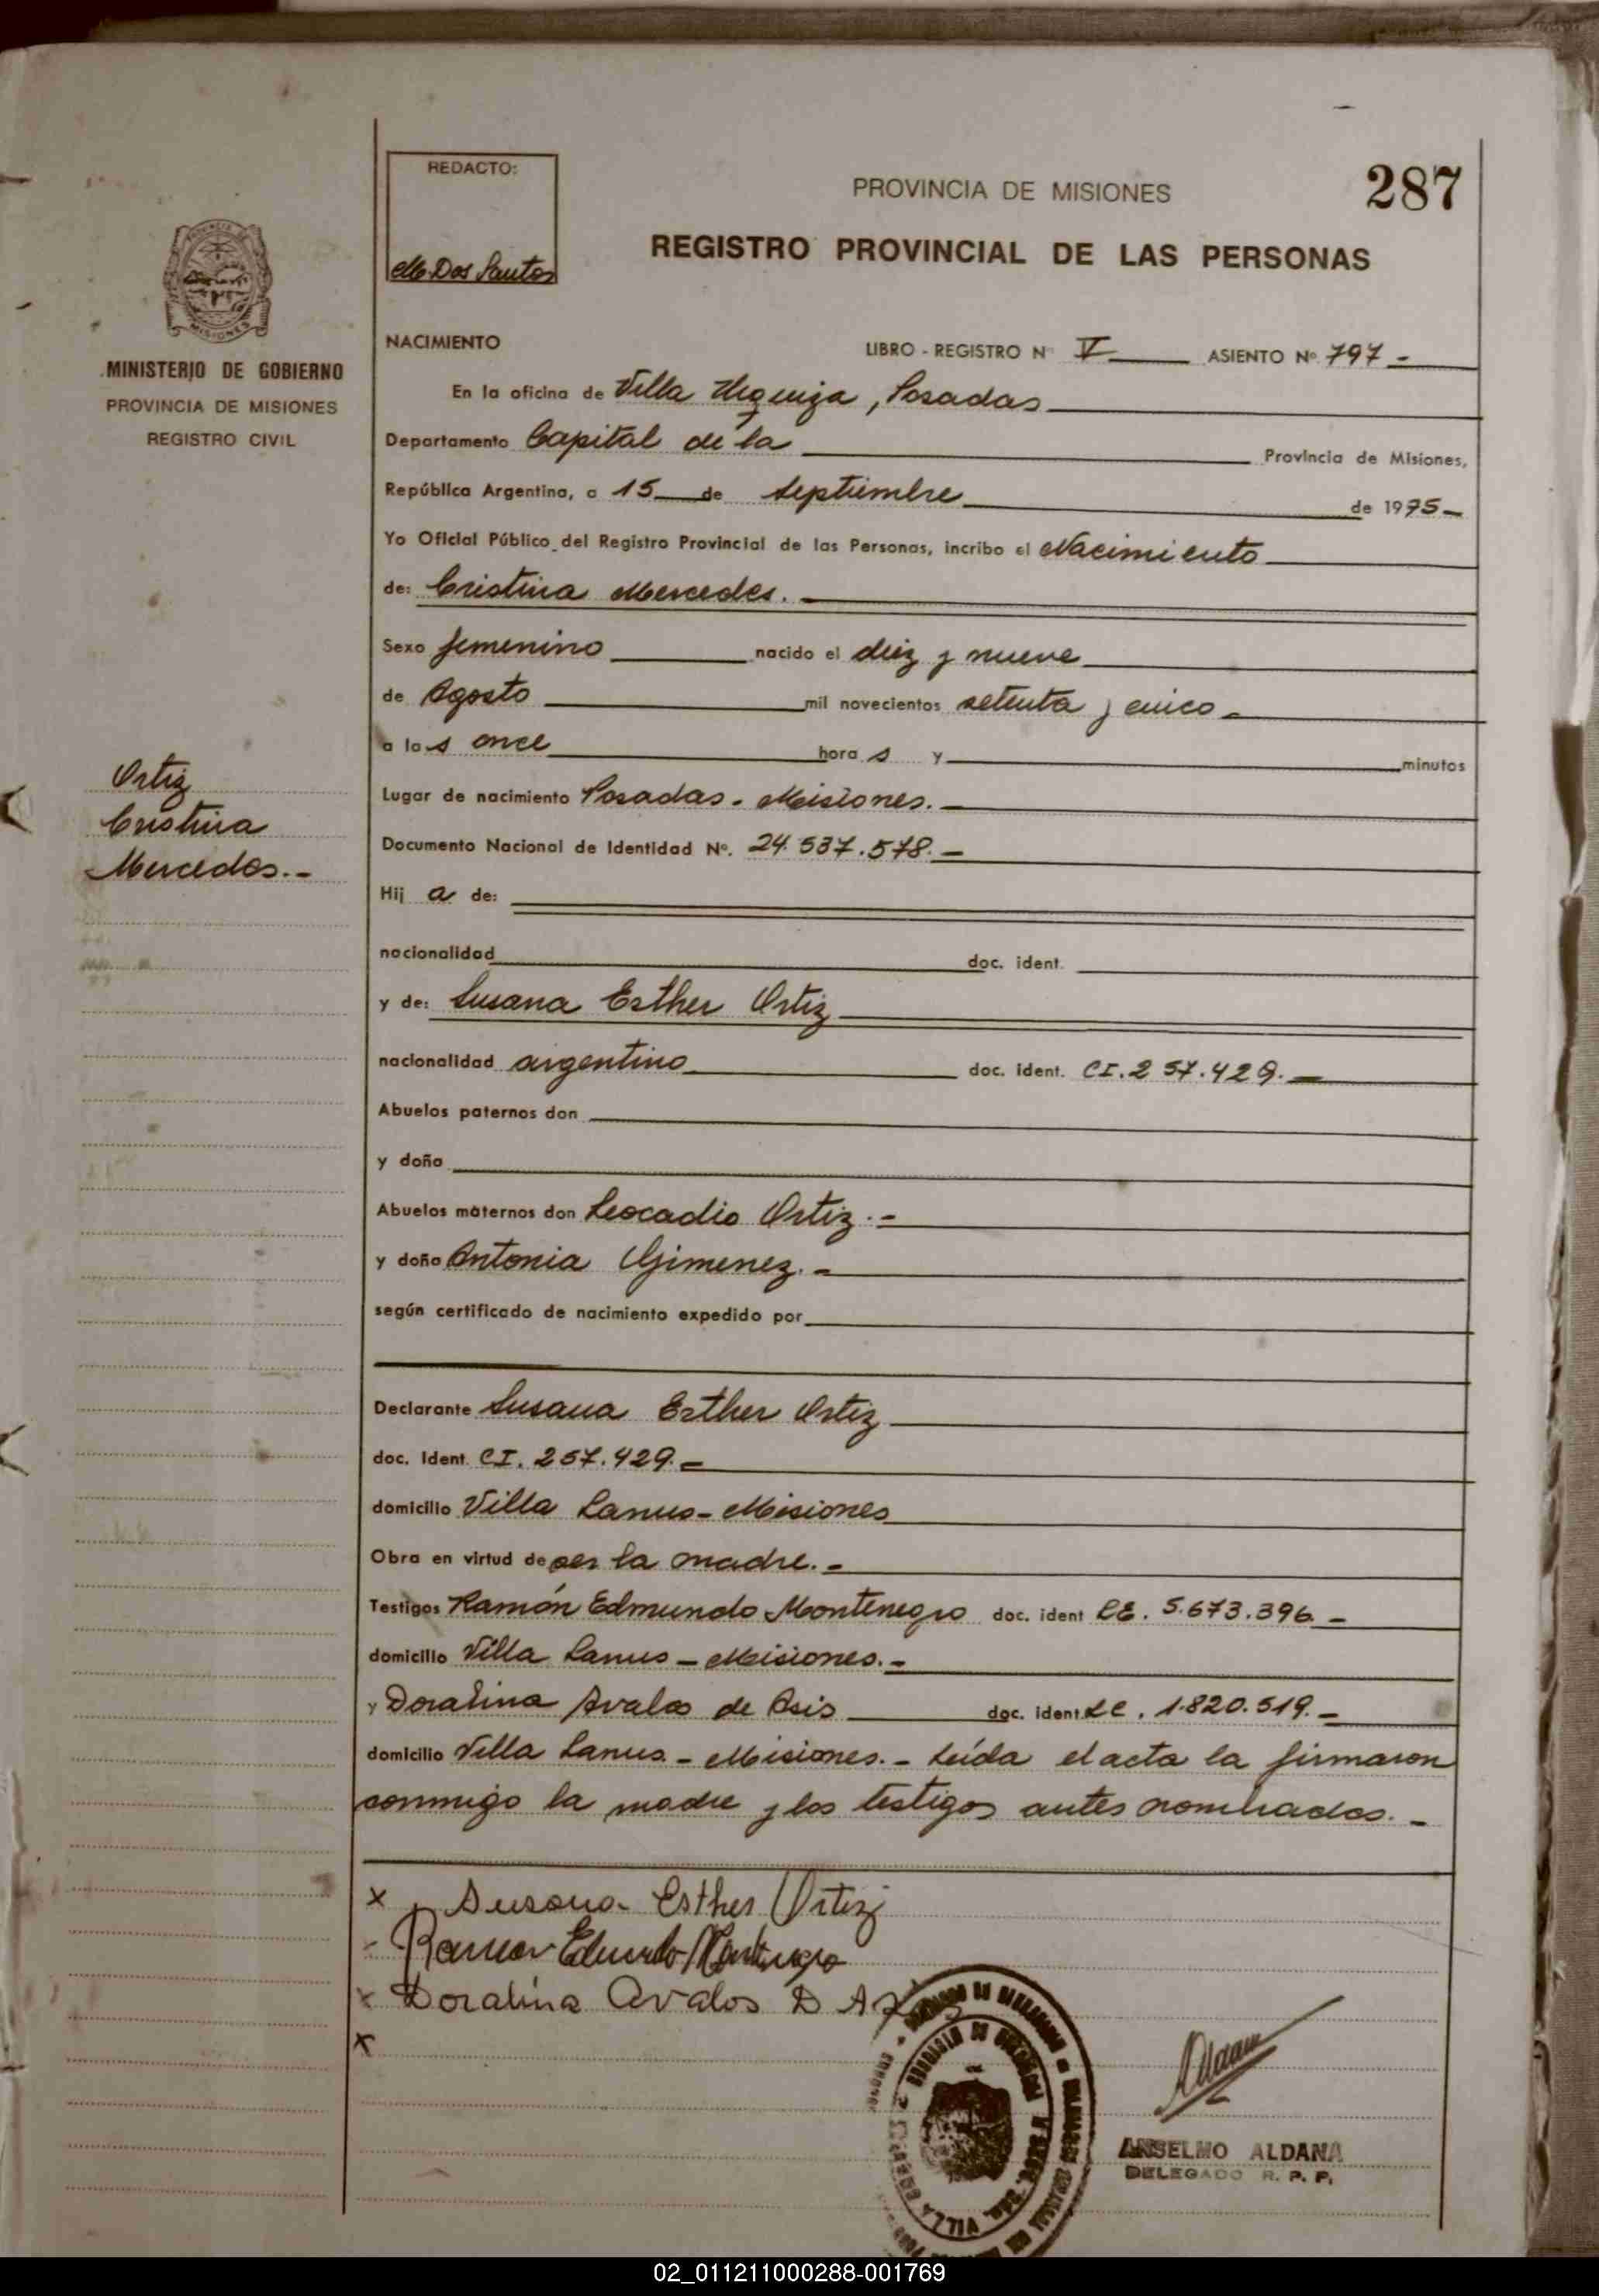 REDACTO:
M. Dos Santos
PROVINCIA DE MISIONES
287
REGISTRO PROVINCIAL DE LAS PERSONAS
MISIONES
MINISTERIO DE GOBIERNO
PROVINCIA DE MISIONES
REGISTRO CIVIL
NACIMIENTO
LIBRO - REGISTRO Nº V ASIENTO Nº 797 -
En la oficina de Villa Urquiza, Posadas
Departamento Capital de la Provincia de Misiones,
República Argentina, a 15 de Septiembre de 1975 -
Yo Oficial Público del Registro Provincial de las Personas, incribo el Nacimiento
de: Cristina Mercedes.
Sexo femenino nacido el diez y nueve
de Agosto mil novecientos setenta y cinco -
a las once horas y minutos
Ortiz
Cristina
Mercedes.-
Lugar de nacimiento Posadas - Misiones.
Documento Nacional de Identidad Nº. 24.537.578. -
Hij a de:
nacionalidad doc. ident.
y de: Susana Esther Ortiz
nacionalidad argentino doc. ident. CI. 257.429. -
Abuelos paternos don
y doña
Abuelos maternos don Leocadio Ortiz. -
y doña Antonia Gimenez. -
según certificado de nacimiento expedido por
Declarante Susana Esther Ortiz
doc. Ident. CI. 257.429. -
domicilio Villa Lanus - Misiones
Obra en virtud de ser la madre. -
Testigos Ramón Edmundo Montenegro doc. ident LE. 5.673.396. -
domicilio Villa Lanus - Misiones. -
y Doralina Avalos de Asis doc. ident. LC. 1.820.519. -
domicilio Villa Lanus - Misiones. - Leída el acta la firmaron
conmigo la madre y los testigos antes nombrados. -
x Susana Esther Ortiz
x Ramon Edmundo Montenegro
x Doralina Avalos D
x
Aldana
ANSELMO ALDANA
DELEGADO R. P. P.
VILLA
02_011211000288-001769